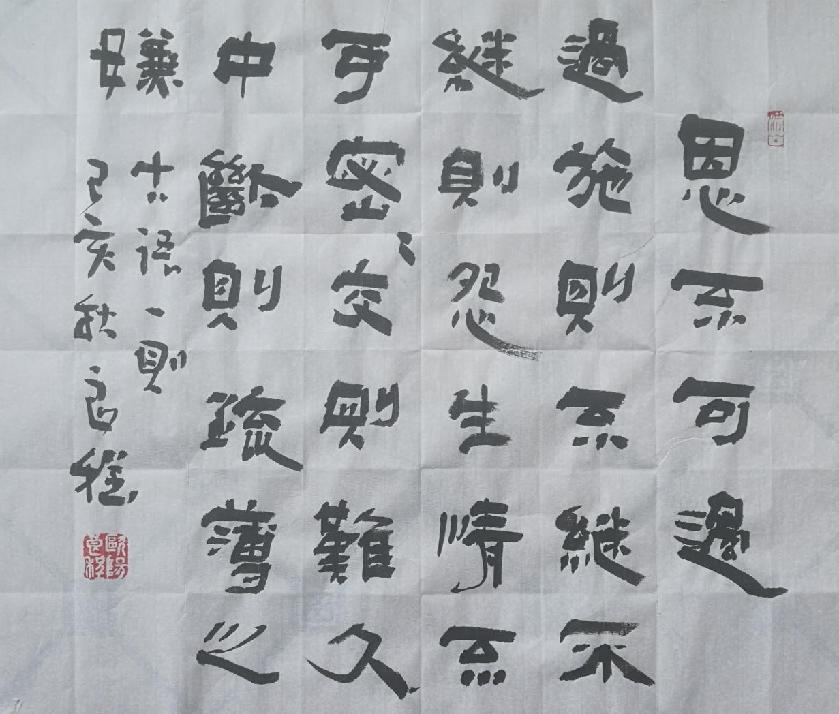 恩不可過
過施則不継不
継則怨生情不
可密〻交則難久
中斷則疏薄之
嫌
古語一則
己亥秋良程